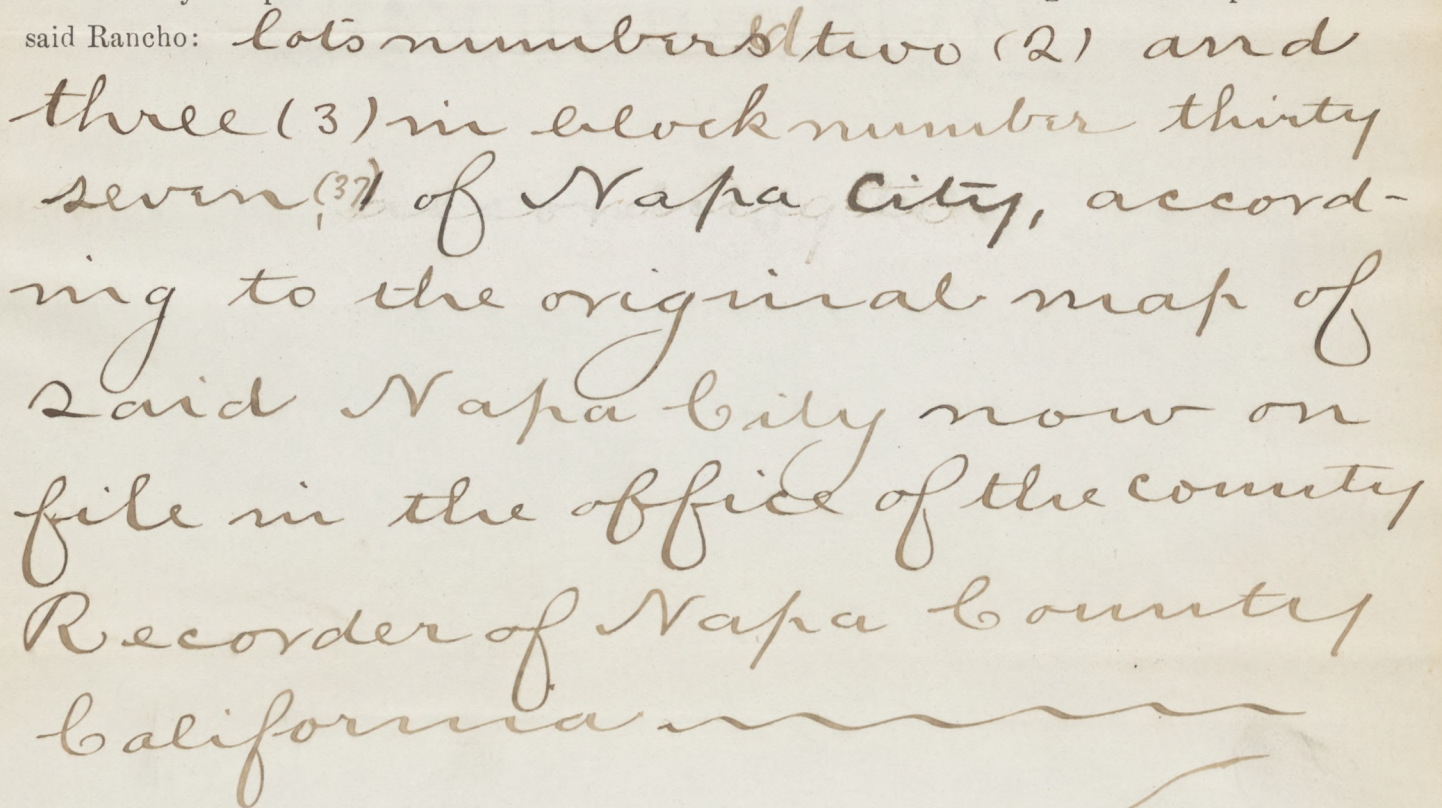 said Rancho: lots numbered two (2) and
three (3) in block number thirty
seven (37) of Napa City, accord-
ing to the original map of
said Napa City now on
file in the office of the county
Recorder of Napa County
California